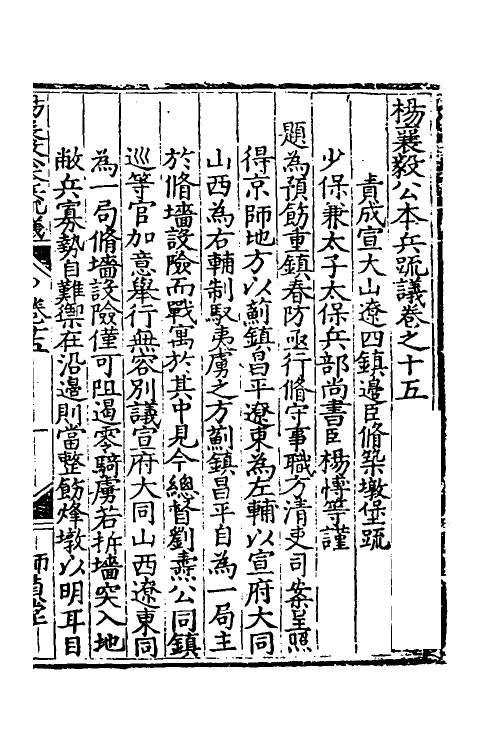 楊襄毅公本兵疏議卷之十五
責成宣大山遼四鎮邊臣脩築墩堡疏
少保兼太子太保兵部尚書臣楊博等謹
題為預飭重鎮春防亟行脩守事職方清吏司案呈照
得京師地方以薊鎮昌平遼東為左輔以宣府大同
山西為右輔制馭夷虜之方薊鎮昌平自為一局主
於脩墻設險而戰寓於其中見今總督劉燾公同鎮
巡等官加意舉行無容別議宣府大同山西遼東同
為一局脩墻設險僅可阻遏零騎虜若拆墻突入地
敝兵寡勢自難禦在沿邊則當整飭烽墩以明耳目
卷十五
一
師貞堂